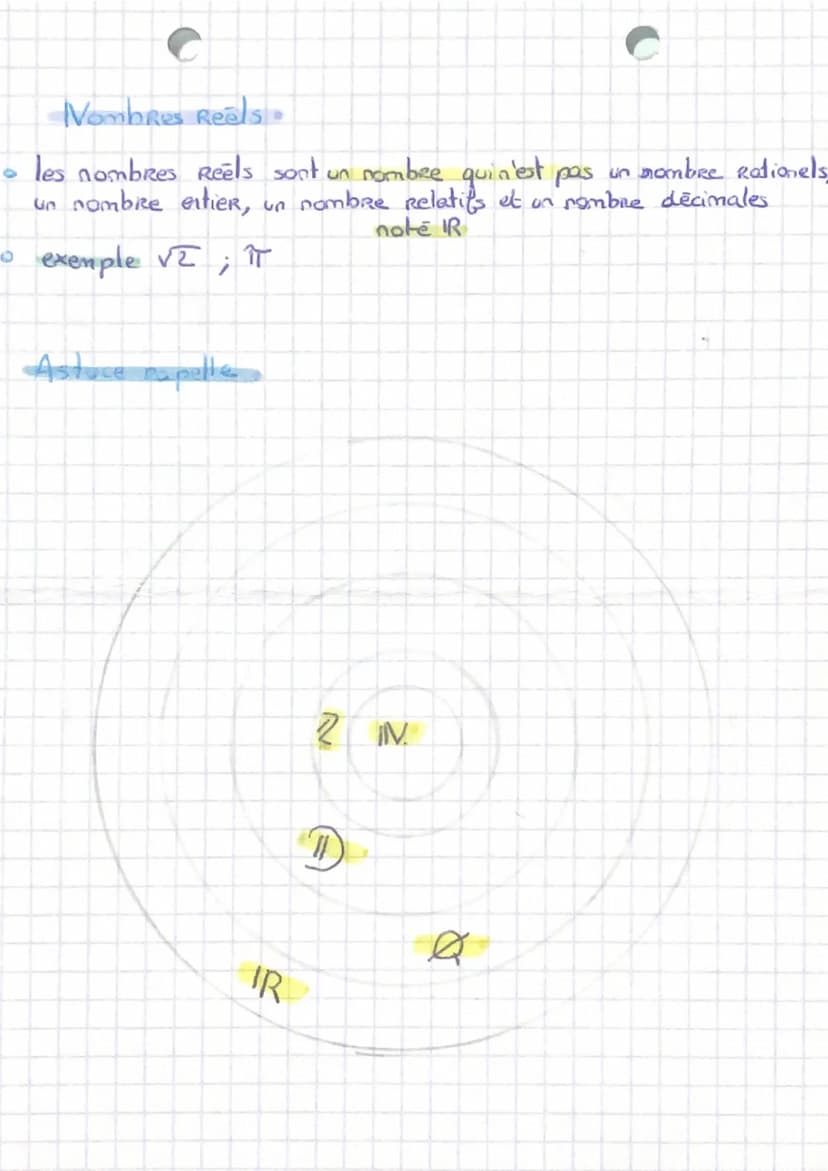 Nombres Reēls
les nombres Reēls sont un nombre qui n'est pas un nombre Rationels,
un nombre entier, un nombre Relatifs et un nombre dēcimales
notē IR
exemple √2 ; π
Astuce rapelle
Z IN
ID
Q
IR